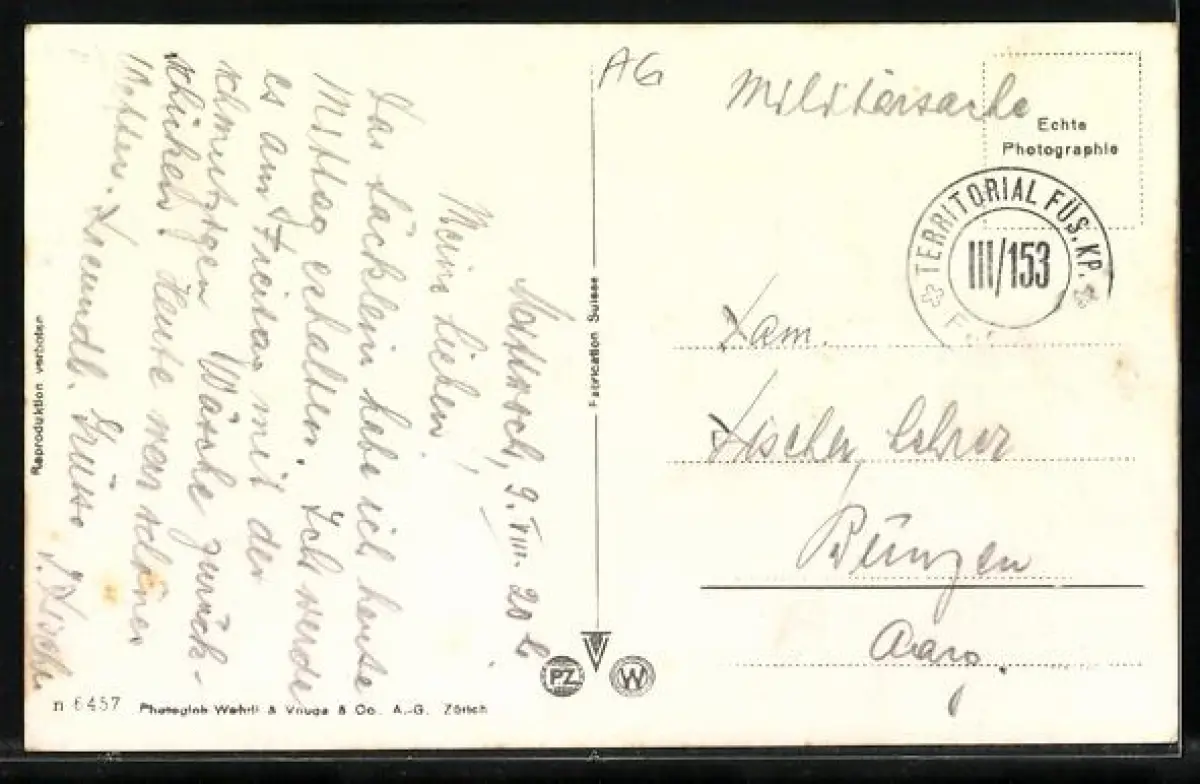 AG
Militärsache
Echte
Photographie
TERRITORIAL FÜS. KP.
III/153
Fam.
Fischer, Lehrer
Bünzen
Aarg.
9. VIII. 20 h.
Meine Lieben!
Das Säcklein habe ich heute
Mittag erhalten. Ich werde
es am Freitag mit der
schmutzigen Wäsche zurück-
schicken. Heute war schönes
Wetter. Freundl. Grüsse
Fabrication Suisse
Reproduktion verboten
PZ
W
n 6457 Photoglob Wehrli & Vouga & Co. A.-G. Zürich